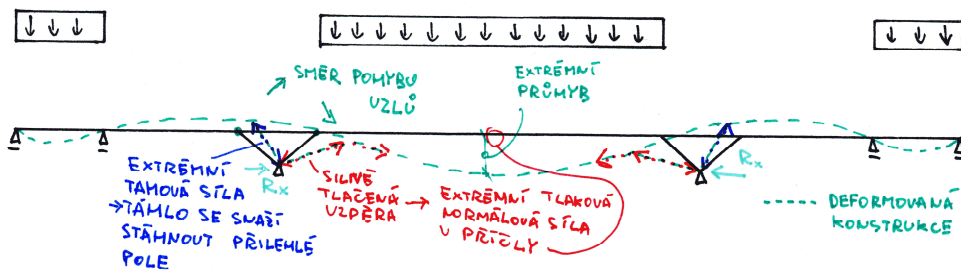 SMĚR POHYBU
UZLŮ
EXTRÉMNÍ
PRŮHYB
EXTRÉMNÍ
TAHOVÁ SÍLA
→ TÁHLO SE SNAŽÍ
STÁHNOUT PŘILEHLÉ
POLE
Rx
SILNĚ
TLAČENÁ
VZPĚRA
→ EXTRÉMNÍ TLAKOVÁ
NORMÁLOVÁ SÍLA
V PŘÍČLY
Rx
DEFORMOVANÁ
KONSTRUKCE